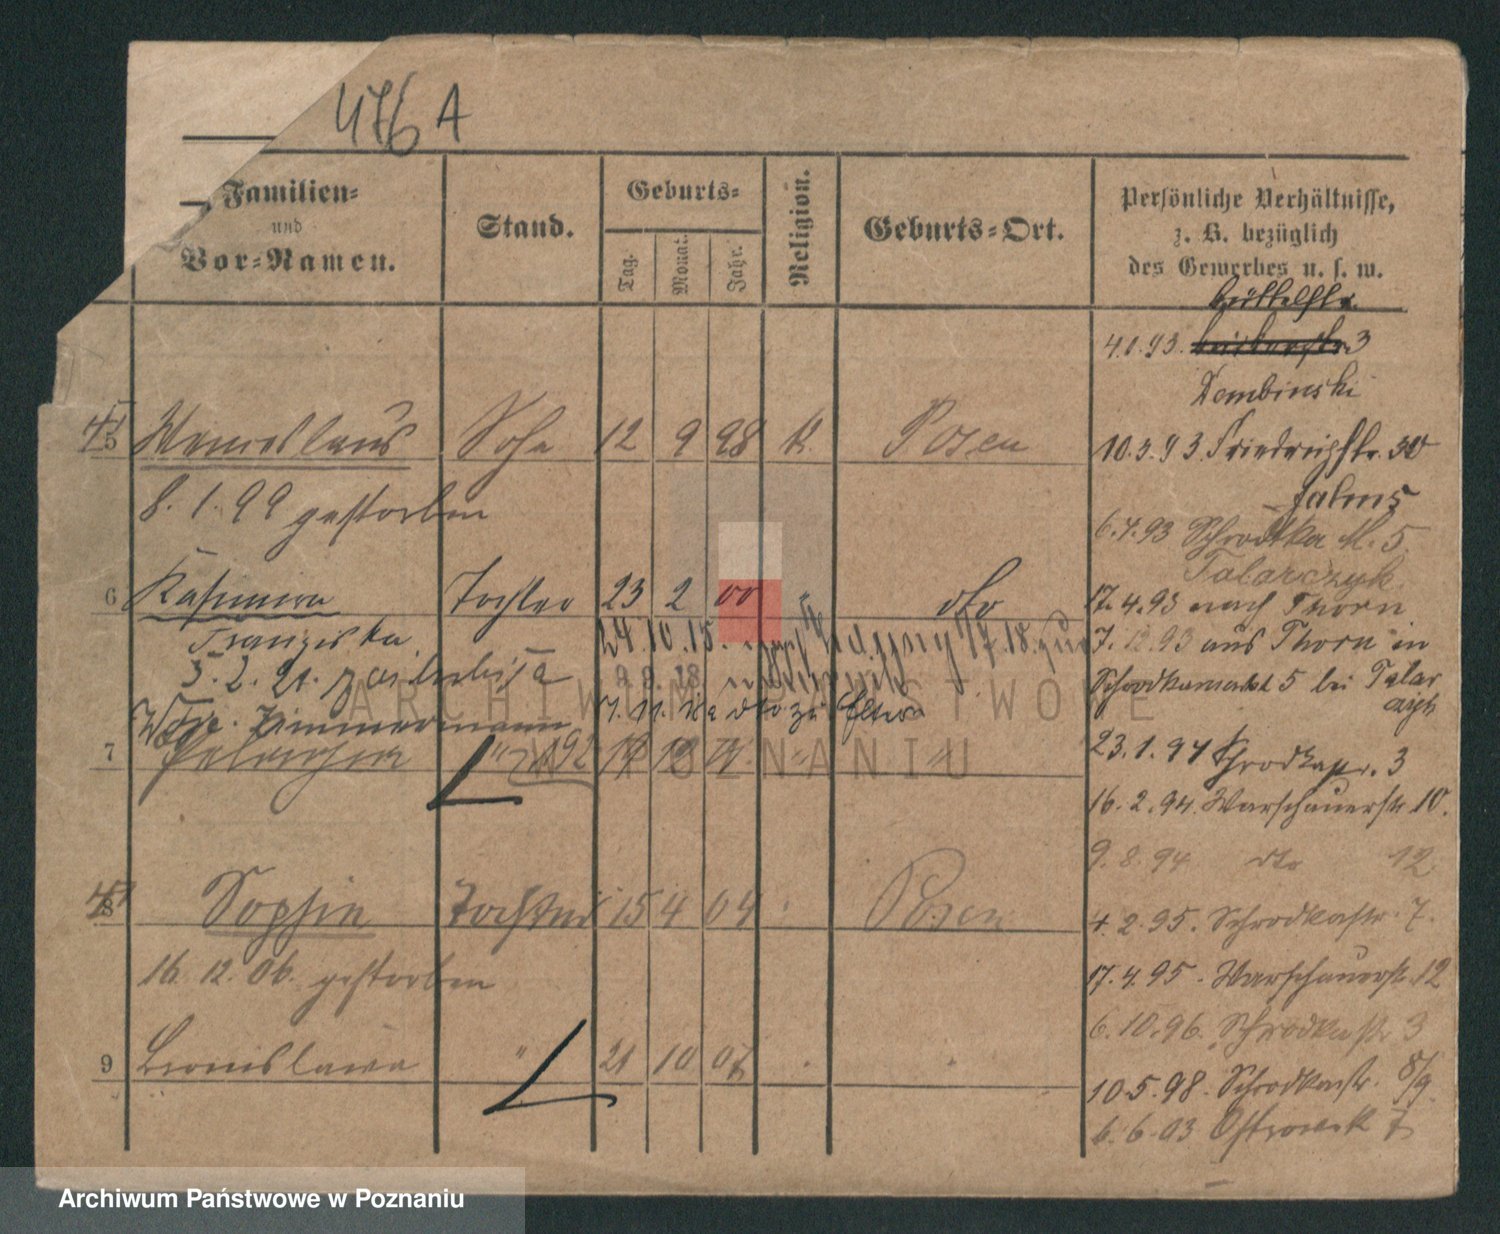 476 A
Familien=
und
Vor=Namen.
Stand.
Geburts=
Tag.
Monat.
Jahr.
Religion.
Geburts=Ort.
Persönliche Verhältnisse,
z. B. bezüglich
des Gewerbes u. s. w.
4.1.93. 3
Dembinski
5 Wenceslaus Sohn 12 9 98 k. Posen
10.3.93 Friedrichstr. 30
8.1.99 gestorben
6.4.93 Schrodka M. 5
Talarczyk
6 Kasimira Tochter 23 2 00 " dto
17.4.93 nach Thorn
Franziska
24.10.15.
7.12.93 aus Thorn in
5.2.21.
9.9.18
Schrodkamarkt 5 bei Talar
czyk
Zimmermann
7 Pelagia "
23.1.94 Schrodkastr. 3
16.2.94. Warschauerstr. 10.
9.8.94 dto 12
8 Sophie Tochter 15 4 04 Posen
4.2.95. Schrodkastr. 7.
16.12.06. gestorben
17.4.95. Warschauerstr. 12
6.10.96. Schrodkastr. 3
9 Bronislawa " 21 10 07
10.5.98. Schrodkastr. 8/9.
6.6.03 Ostrowek 7
ARCHIWUM PAŃSTWOWE
W POZNANIU
Archiwum Państwowe w Poznaniu